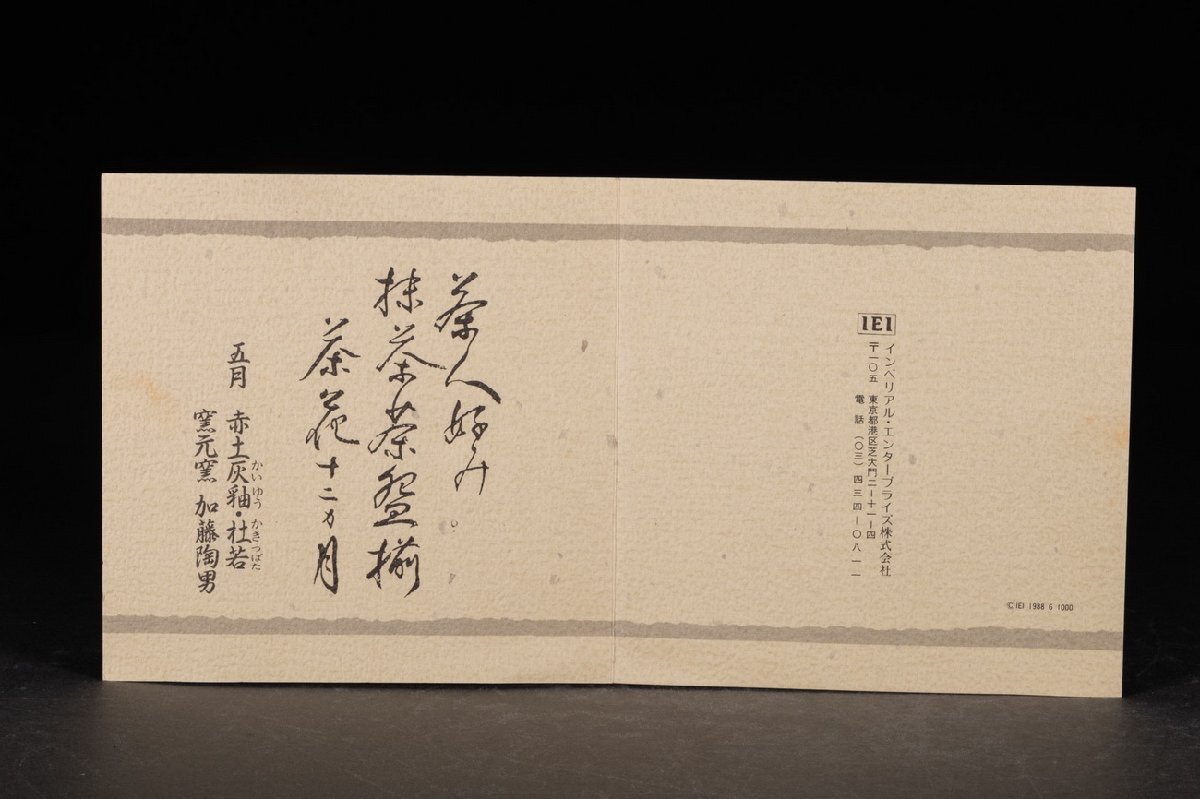 茶人好み
抹茶茶盌揃
茶花十二ヵ月
五月 赤土灰釉・杜若
かいゆう かきつばた
窯元窯 加藤陶男
IEI
インペリアル・エンタープライズ株式会社
〒一〇五 東京都港区芝大門二ー十一ー四
電話(〇三)四三四ー〇八一一
©IEI 1988 6 1000